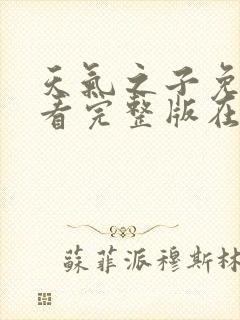 天氣之子免
看完整版在
蘇菲派穆斯林